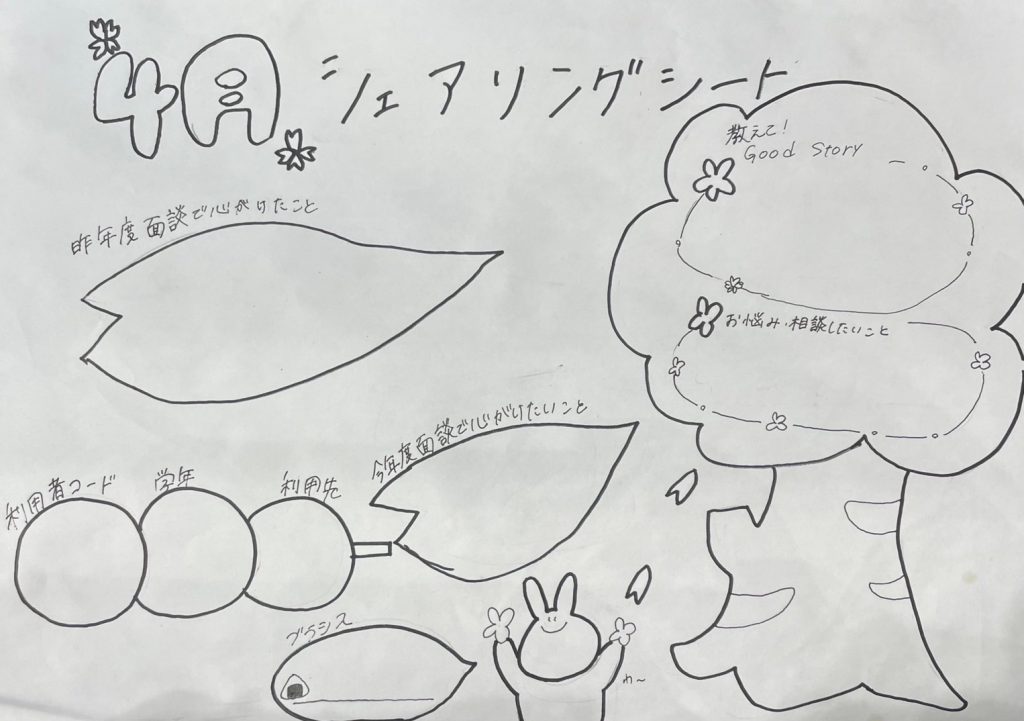 4月 シェアリングシート
教えて!
Good Story
昨年度面談で心がけたこと
お悩み・相談したいこと
今年度面談で心がけたいこと
利用者コード
学年
利用先
プラシス
わ~